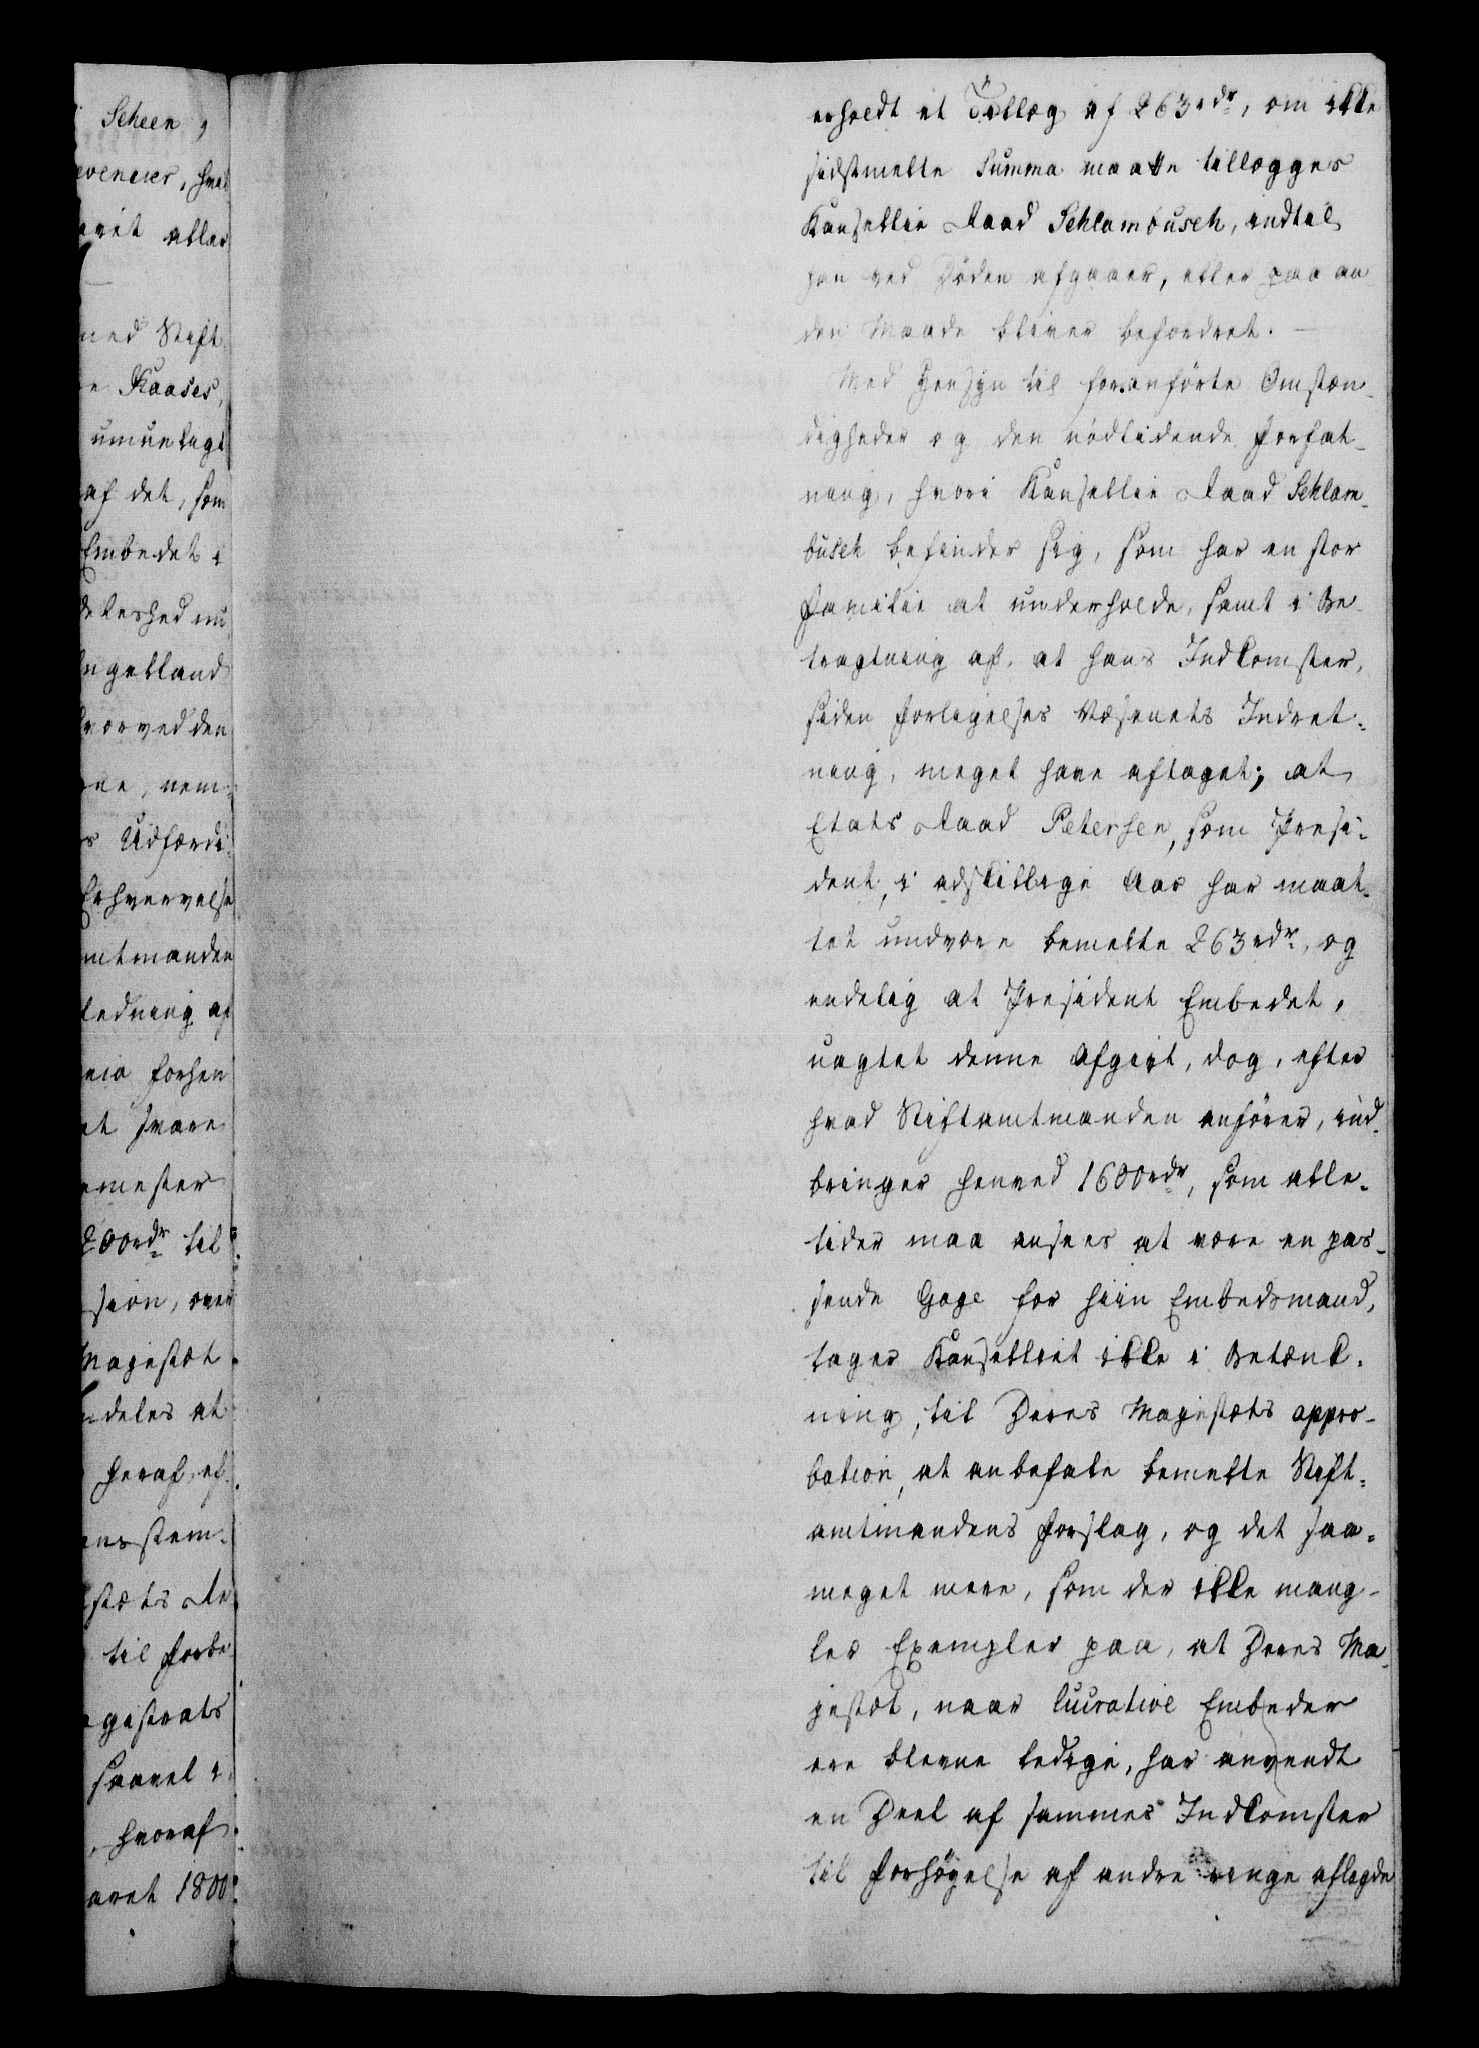 Scheen,
evenuer, hvad
med Stift
Kaases,
umuelagt
af det, som
Embedet i
delerhed nu
ngelland
hvorved den
nem-
Udfærdi-
Erhvervelse
mtmanden
ledning af
forhen
at svare
emester
200rdr til
sion, over
Majestæt
ndeles at
heraf, ef-
ens stem-
stæts Re
til Forbe
gistrats
saavel i
hvoraf
aaret 1800
erholdt et Tillæg af 263rdr, om ikke
sidstmelte Summa maatte tillægges
Kanscellie Raad Schlambusch, indtil
han ved Döden afgaaer, eller paa an
den Maade bliver befordret. —
Med Hensyn til foranförte Omstæn-
digheder og den nödlidende Forfat-
ning, hvori Kanscellie Raad Schlam-
busch befinder sig, som har en stor
Familie at underholde, samt i Be-
tragtning af, at hans Indkomster,
siden Forligelses Væsenets Indret-
ning, meget have aftaget; at
Etats Raad Petersen, som Presi-
dent, i adskillige Aar har maat-
tet undvære bemelte 263rdr, og
endelig at President Embedet,
uagtet denne Afgivt, dog, efter
hvad Stiftamtmanden anförer, ind-
bringer henved 1600rdr, som alle-
tider maa ansees at være en pas-
sende Gage for hiin Embedsmand,
tager Kanselliet ikke i Betænk-
ning, til Deres Majestæts appro-
bation, at anbefale bemelte Stift-
amtmandens Forslag, og det saa-
meget mere, som der ikke mang-
ler Exempler paa, at Deres Ma-
jestæt, naar lucrative Embeder
ere blevne ledige, har anvendt
en Deel af sammes Indkomster
til Forhögelse af andre ringe aflagde